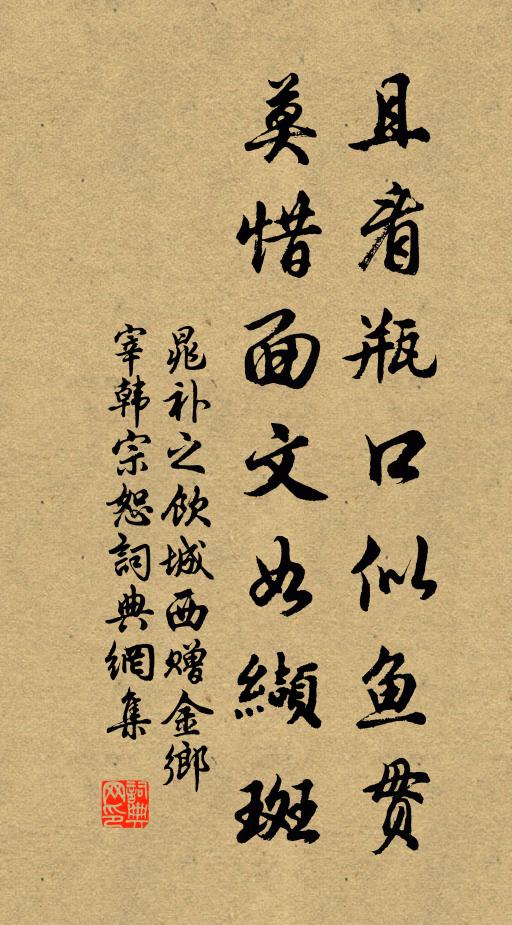 且看瓶口似鱼贯
莫惜面文如纈斑
晁补之飲城西赠金鄉
宰韩宗恕詞典網集
詞典网印